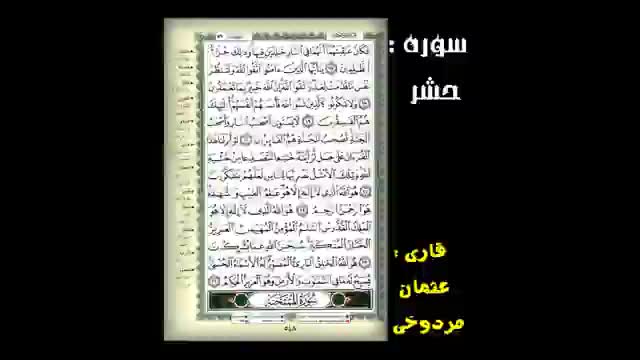 سوره :
حشر
فكان عقبتهما أنهما في النار خلدين فيها وذلك جزؤا
الظلمين ١٧ يأيها الذين ءامنوا اتقوا الله ولتنظر
نفس ما قدمت لغد واتقوا الله إن الله خبير بما تعملون
١٨ ولا تكونوا كالذين نسوا الله فأنسهم أنفسهم أولئك
هم الفسقون ١٩ لا يستوي أصحب النار وأصحب
الجنة أصحب الجنة هم الفائزون ٢٠ لو أنزلنا هذا
القرءان على جبل لرأيته خشعا متصدعا من خشية
الله وتلك الأمثل نضربها للناس لعلهم يتفكرون
٢١ هو الله الذي لا إله إلا هو علم الغيب والشهدة
هو الرحمن الرحيم ٢٢ هو الله الذي لا إله إلا هو
الملك القدوس السلم المؤمن المهيمن العزيز
الجبار المتكبر سبحن الله عما يشركون
٢٣ هو الله الخلق البارئ المصور له الأسماء الحسنى
يسبح له ما في السموت والأرض وهو العزيز الحكيم ٢٤
سورة الممتحنة
٥٤٨
قاری :
عثمان
مردوخی